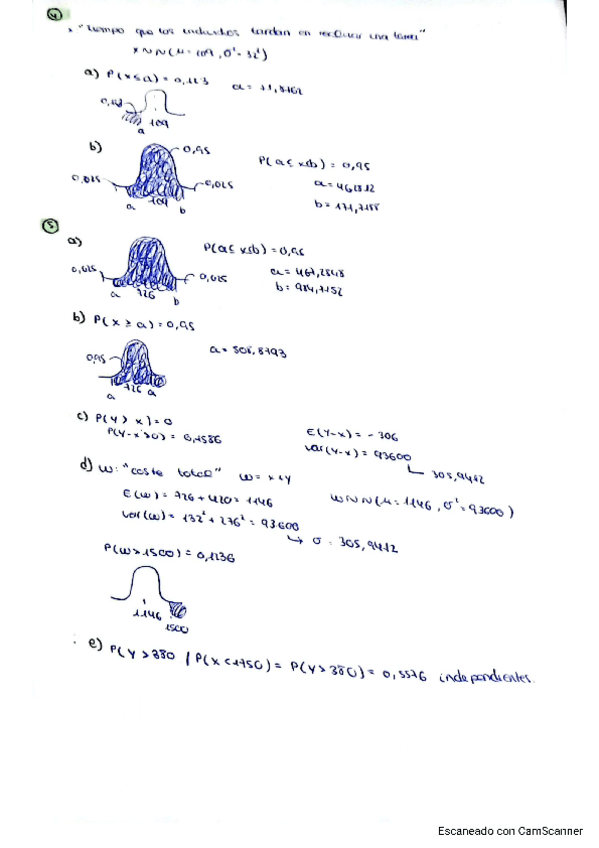 4
x "Tiempo que los individuos tardan en realizar una tarea"
x ~ N(μ = 109, σ² = 32²)
a) P(x ≤ a) = 0,123
a = 71,8762
109
a
b)
0,95
P(a ≤ x ≤ b) = 0,95
0,025
0,025
a = 46,2812
109
a
b
b = 171,7188
5
a)
P(a ≤ x ≤ b) = 0,95
0,025
0,025
a = 467,2848
726
b = 984,7152
a
b
b) P(x ≥ a) = 0,95
0,95
a = 508,8793
726
a
a
c) P(Y > x) = 0
P(Y-x > 0) = 0,1586
E(Y-x) = -306
Var(Y-x) = 93600
305,9412
d) W: "coste total" W = x+y
E(W) = 726 + 420 = 1146
W ~ N(μ = 1146, σ² = 93600)
Var(W) = 132² + 276² = 93600
σ = 305,9412
P(W > 1500) = 0,1236
1146
1500
e) P(Y > 380 / P(x < 1750) = P(Y > 380) = 0,5576 independientes.
Escaneado con CamScanner